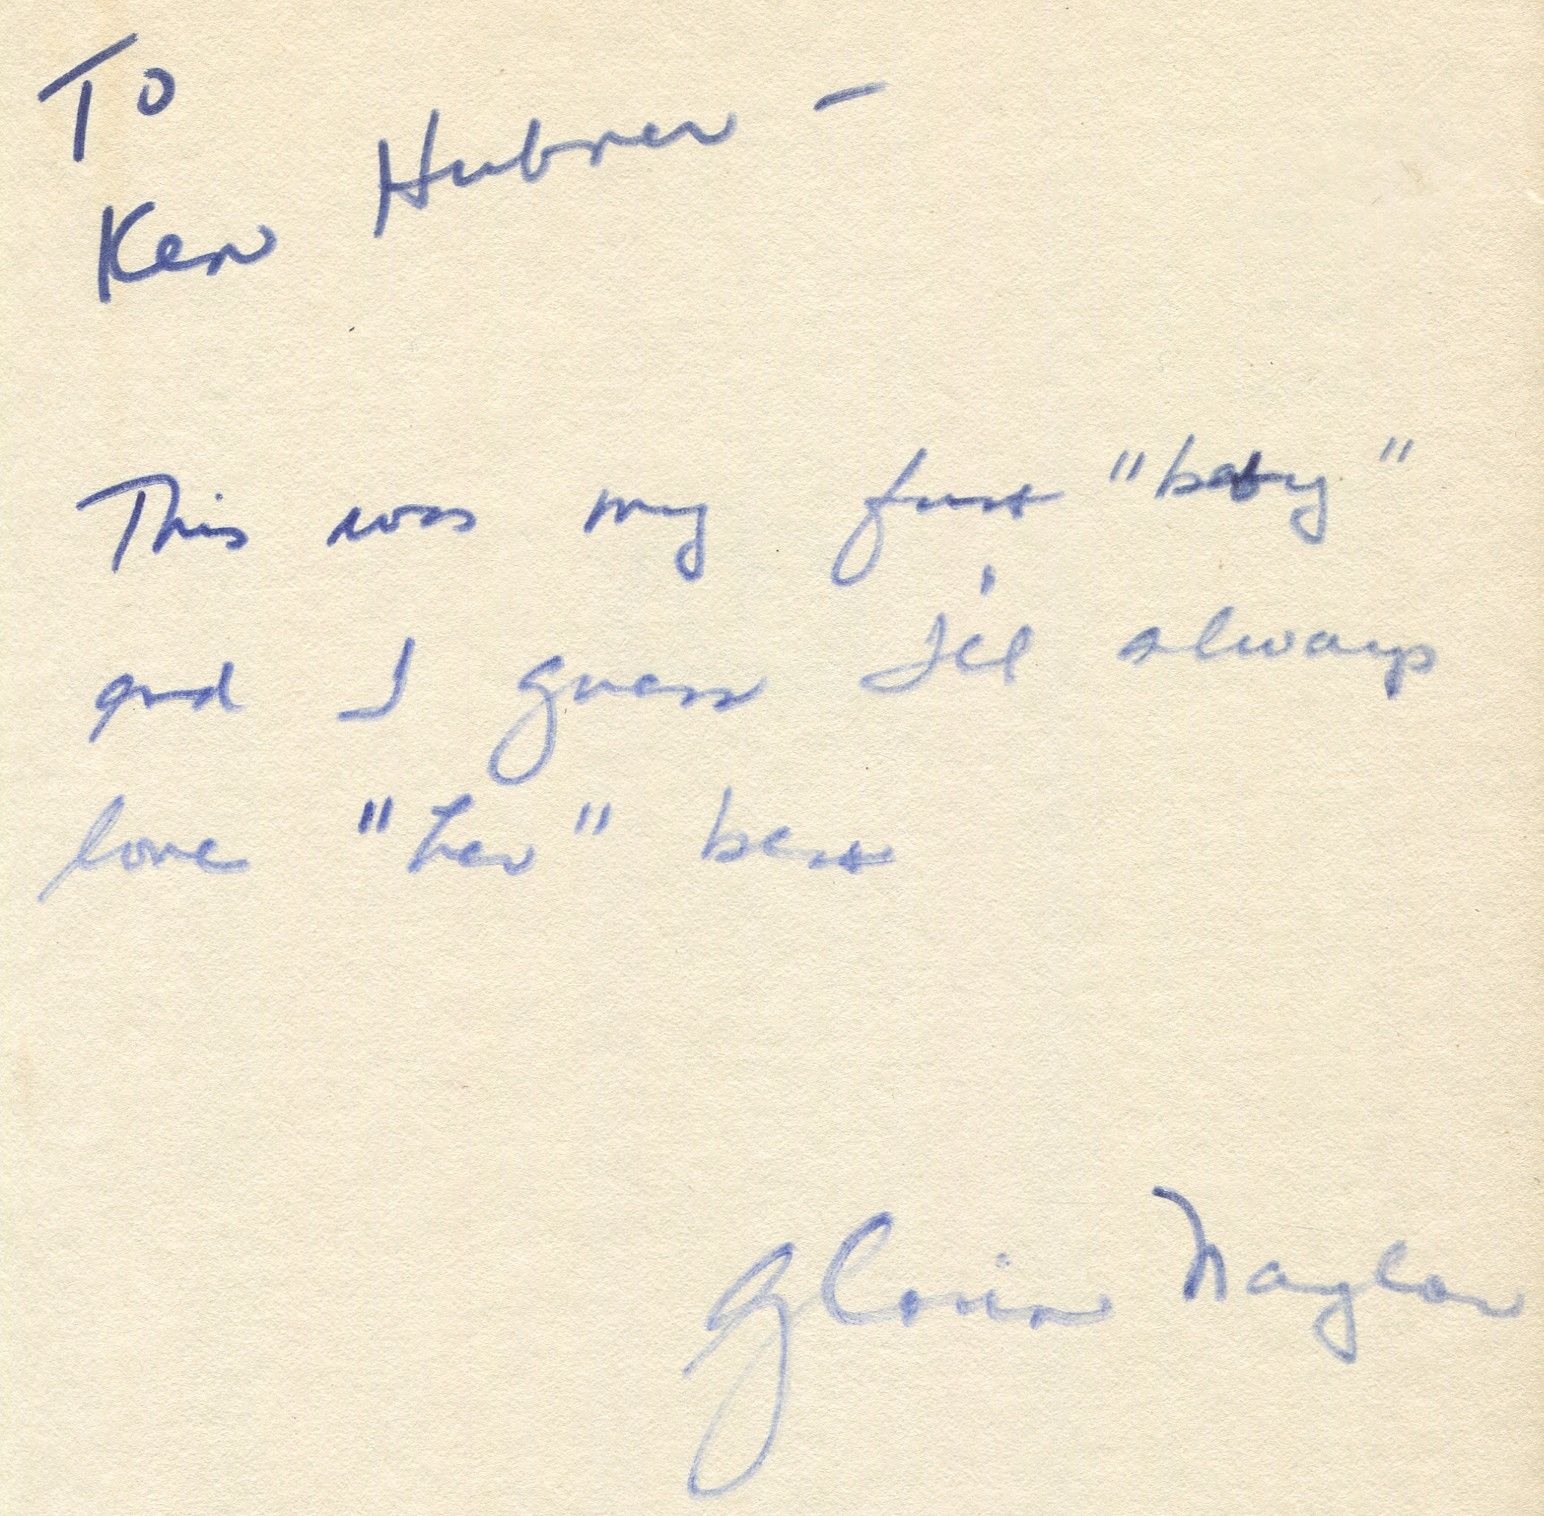 To
Ken Hubner –
This was my first "baby"
and I guess I'll always
love "her" best
Gloria Naylor